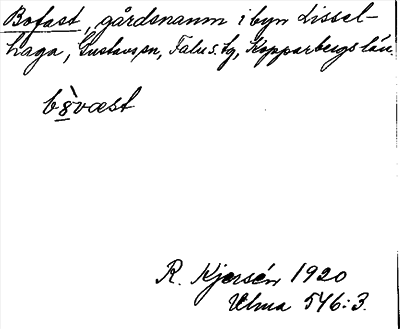 Bofast, gårdsnamn i byn Lissel-
haga, Gustavs sn, Falu s. fg, Kopparbergs län.
R. Kjersén 1920
Ulma 546:3.